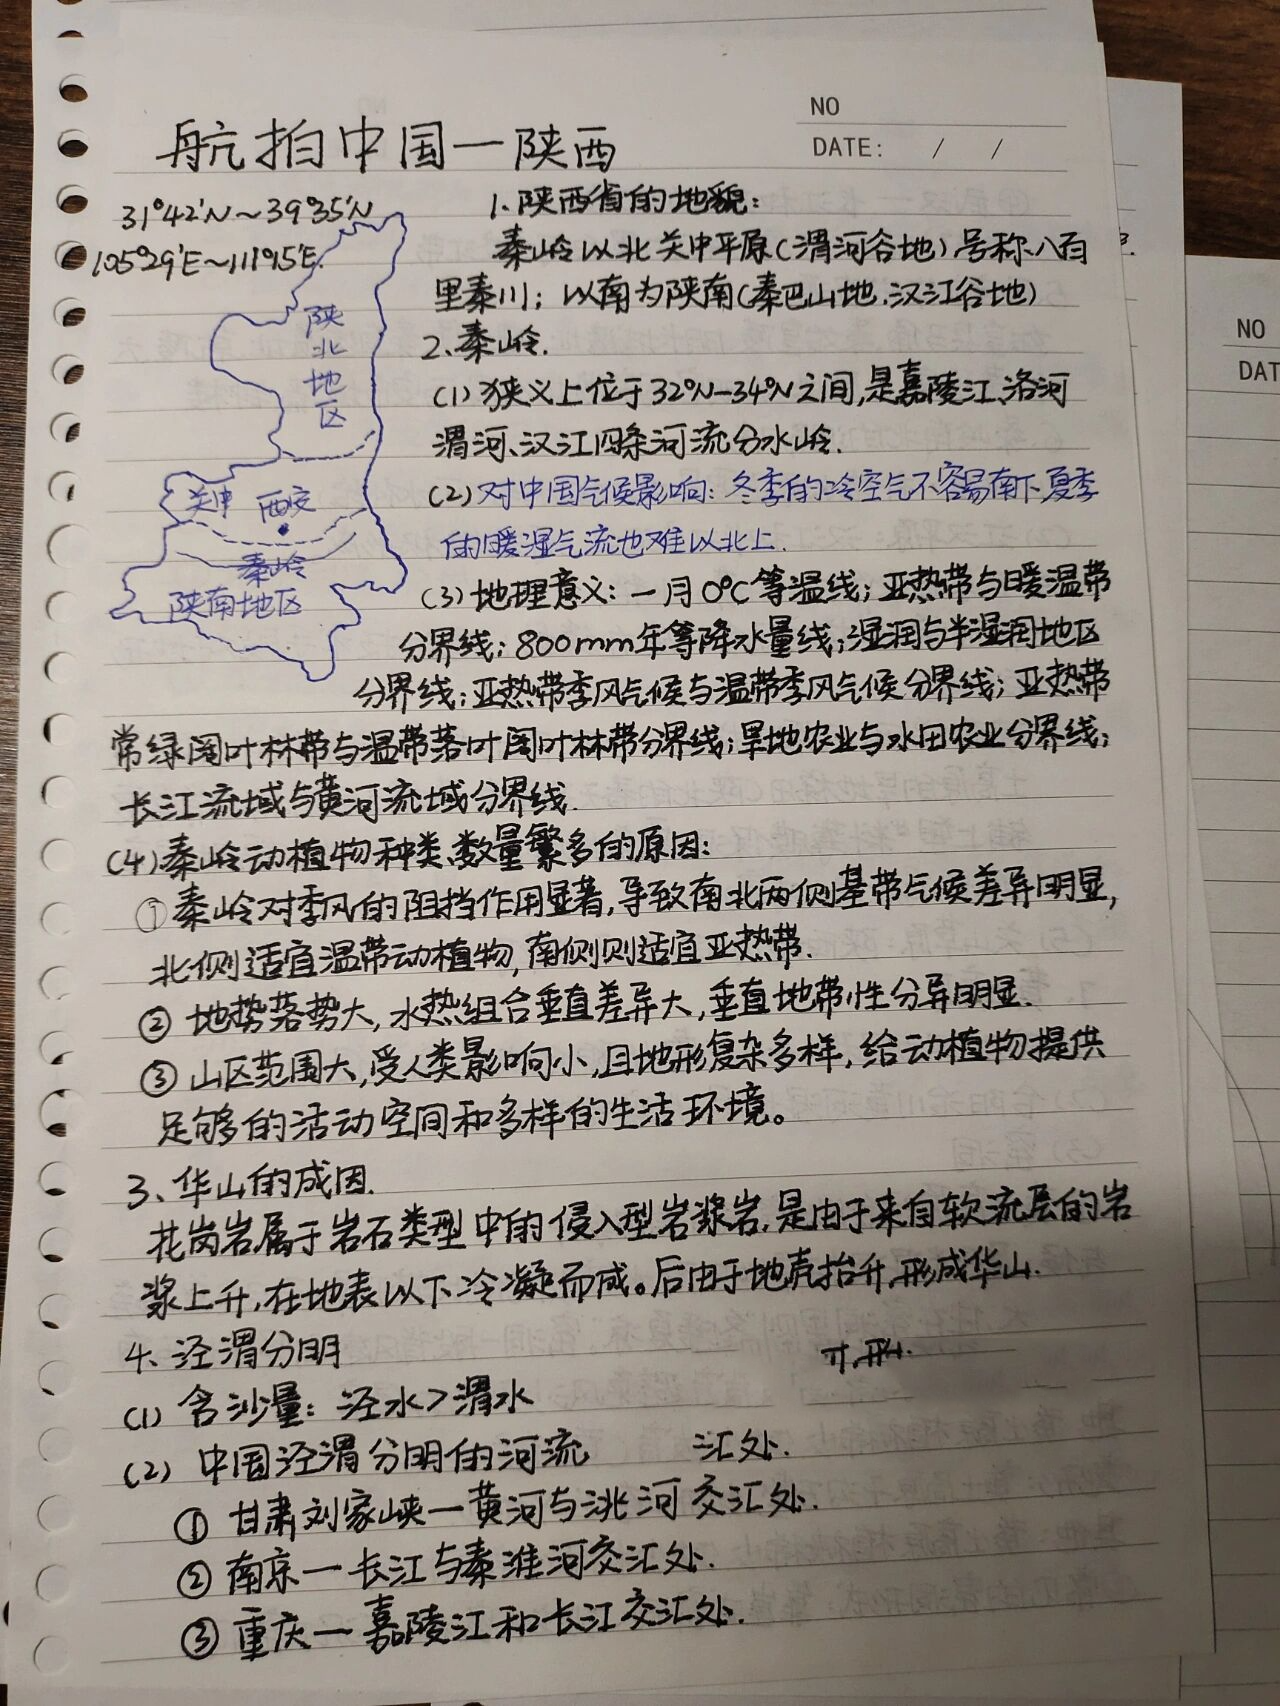 NO
DATE: / /
航拍中国一陕西
31°42′N~39°35′N
105°29′E~111°15′E.
陕北地区
关中 西安
秦岭
陕南地区
1.陕西省的地貌:
秦岭以北关中平原(渭河谷地)号称八百
里秦川;以南为陕南(秦巴山地,汉江谷地)
2.秦岭.
(1)狭义上位于32°N-34°N之间,是嘉陵江、洛河
渭河、汉江四条河流分水岭.
(2)对中国气候影响:冬季的冷空气不容易南下,夏季
的暖湿气流也难以北上.
(3)地理意义:一月0℃等温线;亚热带与暖温带
分界线;800mm年等降水量线;湿润与半湿润地区
分界线;亚热带季风气候与温带季风气候分界线;亚热带
常绿阔叶林带与温带落叶阔叶林带分界线;旱地农业与水田农业分界线;
长江流域与黄河流域分界线.
(4)秦岭动植物种类、数量繁多的原因:
①秦岭对季风的阻挡作用显著,导致南北两侧基带气候差异明显,
北侧适宜温带动植物,南侧则适宜亚热带.
②地势落势大,水热组合垂直差异大,垂直地带性分异明显.
③山区范围大,受人类影响小,且地形复杂多样,给动植物提供
足够的活动空间和多样的生活环境。
3、华山的成因.
花岗岩属于岩石类型中的侵入型岩浆岩,是由于来自软流层的岩
浆上升,在地表以下冷凝而成。后由于地壳抬升,形成华山.
4、泾渭分明
(1)含沙量:泾水>渭水
(2)中国泾渭分明的河流 汇处.
①甘肃刘家峡一黄河与洮河交汇处.
②南京一长江与秦淮河交汇处.
③重庆一嘉陵江和长江交汇处.
NO
DAT